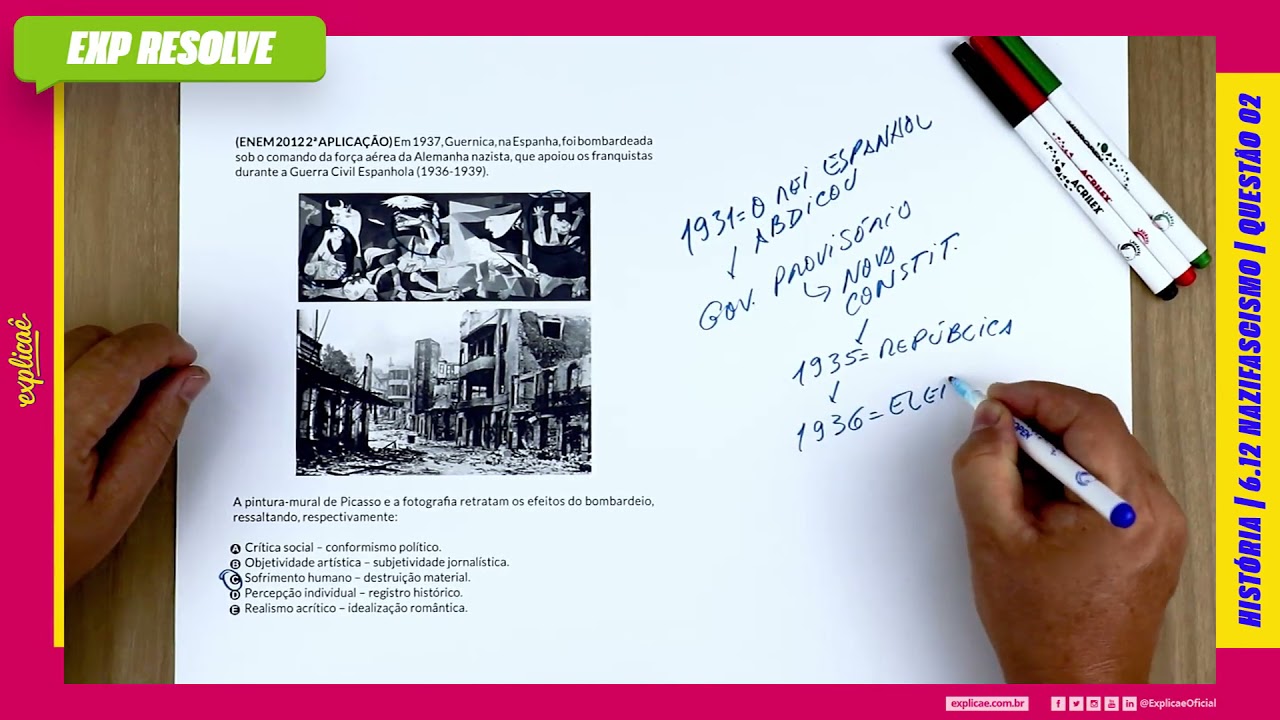 EXP RESOLVE
(ENEM 2012 2ª APLICAÇÃO) Em 1937, Guernica, na Espanha, foi bombardeada
sob o comando da força aérea da Alemanha nazista, que apoiou os franquistas
durante a Guerra Civil Espanhola (1936-1939).
A pintura-mural de Picasso e a fotografia retratam os efeitos do bombardeio,
ressaltando, respectivamente:
A Crítica social – conformismo político.
B Objetividade artística – subjetividade jornalística.
C Sofrimento humano – destruição material.
D Percepção individual – registro histórico.
E Realismo acrítico – idealização romântica.
1931= O REI ESPANHOL
↓ ABDICOU
GOV. PROVISÓRIO
↳ NOVA
CONSTIT.
↓
1935= REPÚBLICA
↓
1936= ELEI
ACRILEX
ACRILEX
explicaê
HISTÓRIA | 6.12 NAZIFASCISMO | QUESTÃO 02
explicae.com.br
@ExplicaeOficial